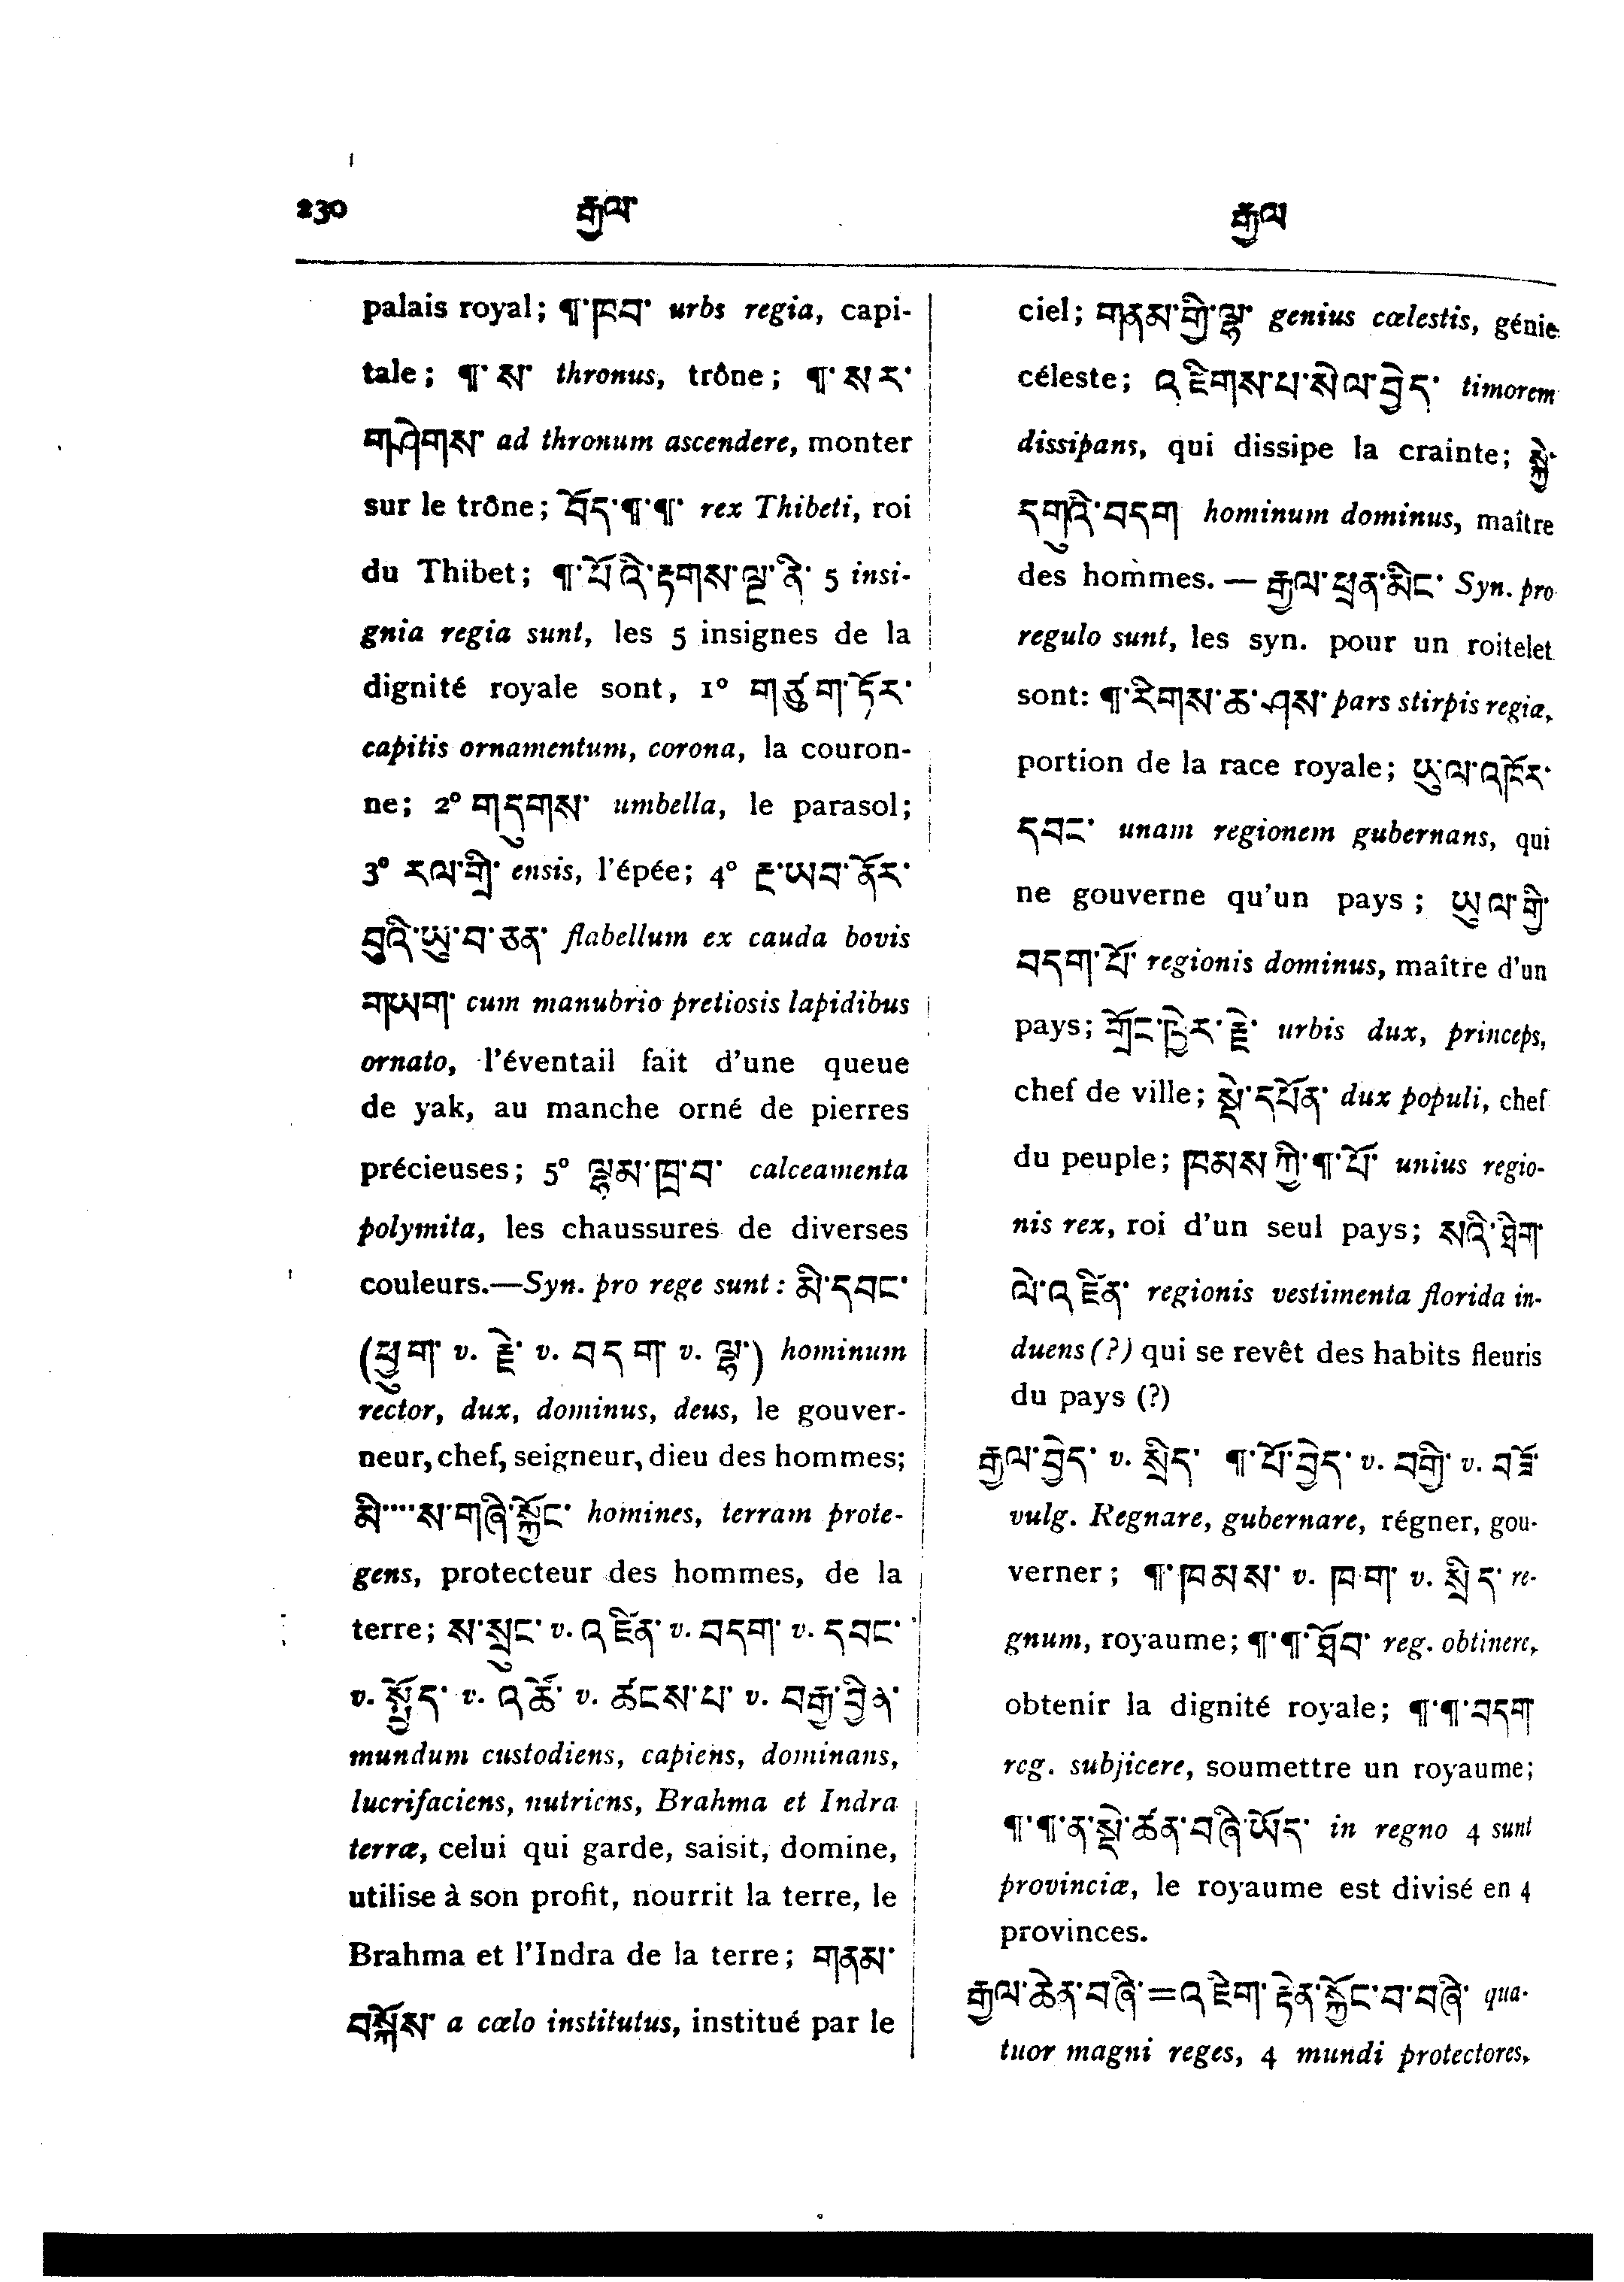 230 རྒྱལ་ རྒྱལ
palais royal; ¶་ཁབ་ urbs regia, capi-
tale; ¶་ས་ thronus, trône; ¶་སར་
གཤེགས་ ad thronum ascendere, monter
sur le trône; བོད་¶་¶་ rex Thibeti, roi
du Thibet; ¶་པོའི་རྟགས་ལྔ་ནི་ 5 insi-
gnia regia sunt, les 5 insignes de la
dignité royale sont, 1° གཙུག་ཏོར་
capitis ornamentum, corona, la couron-
ne; 2° གདུགས་ umbella, le parasol;
3° རལ་གྲི་ ensis, l'épée; 4° རྔ་ཡབ་ནོར་
བུའི་ཡུ་བ་ཅན་ flabellum ex cauda bovis
གཡག་ cum manubrio pretiosis lapidibus
ornato, l'éventail fait d'une queue
de yak, au manche orné de pierres
précieuses; 5° ལྷམ་ཁྲ་བ་ calceamenta
polymita, les chaussures de diverses
couleurs.—Syn. pro rege sunt: མི་དབང་
(ཕྱུག་ v. རྗེ་ v. བདག་ v. ལྷ་) hominum
rector, dux, dominus, deus, le gouver-
neur, chef, seigneur, dieu des hommes;
མི་···ས་གཞི་སྐྱོང་ homines, terram prote-
gens, protecteur des hommes, de la
terre; ས་སྲུང་ v. འཛིན་ v. བདག་ v. དབང་
v. སྤྱོད་ v. འཚོ་ v. ཚངས་པ་ v. བརྒྱ་བྱིན་
mundum custodiens, capiens, dominans,
lucrifaciens, nutriens, Brahma et Indra
terræ, celui qui garde, saisit, domine,
utilise à son profit, nourrit la terre, le
Brahma et l'Indra de la terre; གནམ་
བསྐོས་ a cœlo institutus, institué par le
ciel; གནམ་གྱི་ལྷ་ genius cœlestis, génie
céleste; འཇིགས་པ་སེལ་བྱེད་ timorem
dissipans, qui dissipe la crainte; སྐྱེ་
དགུའི་བདག hominum dominus, maître
des hommes. — རྒྱལ་ཕྲན་མིང་ Syn. pro
regulo sunt, les syn. pour un roitelet
sont: ¶་རིགས་ཆ་ཤས་ pars stirpis regia,
portion de la race royale; ཡུལ་འཁོར་
དབང་ unam regionem gubernans, qui
ne gouverne qu'un pays; ཡུལ་གྱི་
བདག་པོ་ regionis dominus, maître d'un
pays; གྲོང་ཁྱེར་རྗེ་ urbis dux, princeps,
chef de ville; སྡེ་དཔོན་ dux populi, chef
du peuple; ཁམས་ཀྱི་¶་པོ་ unius regio-
nis rex, roi d'un seul pays; སའི་ཐིག
ལེ་འཛིན་ regionis vestimenta florida in-
duens (?) qui se revêt des habits fleuris
du pays (?)
རྒྱལ་བྱེད་ v. སྲིད་ ¶་པོ་བྱེད་ v. བགྱི་ v. བཟོ་
vulg. Regnare, gubernare, régner, gou-
verner; ¶་ཁམས་ v. ཁག་ v. སྲིད་ re-
gnum, royaume; ¶་¶་ཐོབ་ reg. obtinere,
obtenir la dignité royale; ¶་¶་བདག
reg. subjicere, soumettre un royaume;
¶་¶་ན་སྡེ་ཚན་བཞི་ཡོད་ in regno 4 sunt
provinciæ, le royaume est divisé en 4
provinces.
རྒྱལ་ཆེན་བཞི་=འཇིག་རྟེན་སྐྱོང་བ་བཞི་ qua-
tuor magni reges, 4 mundi protectores,